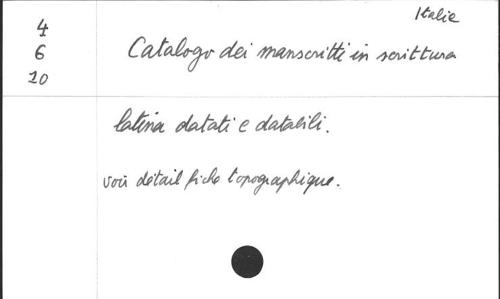 Italie
4
6
10
Catalogo dei manscritti in scrittura
latina datati e databili.
voir détail fiche topographique.